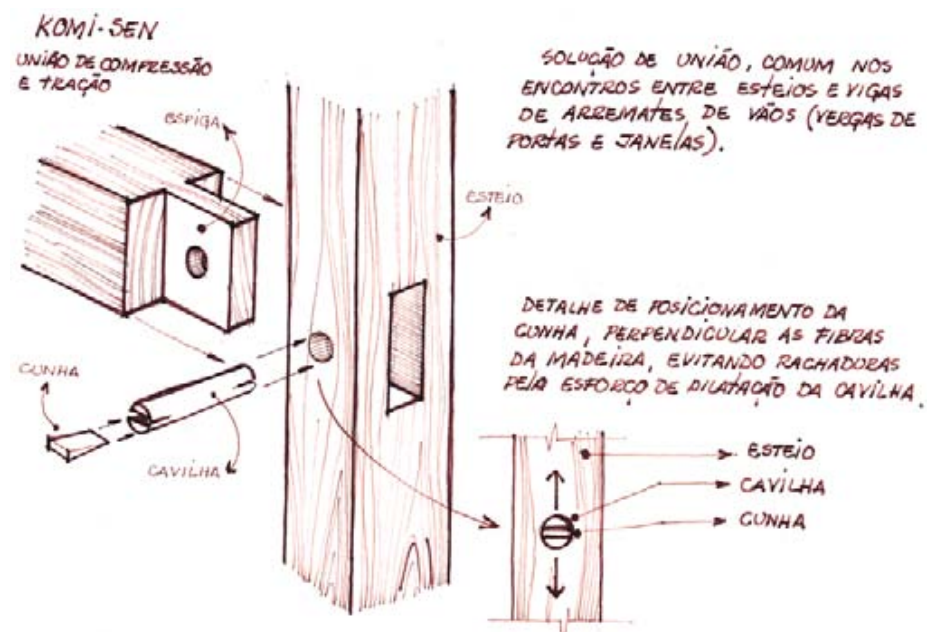 KOMI-SEN
UNIÃO DE COMPRESSÃO
E TRAÇÃO
SOLUÇÃO DE UNIÃO, COMUM NOS
ENCONTROS ENTRE ESTEIOS E VIGAS
DE ARREMATES DE VÃOS (VERGAS DE
PORTAS E JANELAS).
ESPIGA
ESTEIO
DETALHE DE POSICIONAMENTO DA
CUNHA, PERPENDICULAR AS FIBRAS
DA MADEIRA, EVITANDO RACHADURAS
PELA ESFORÇO DE DILATAÇÃO DA CAVILHA.
CUNHA
CAVILHA
ESTEIO
CAVILHA
CUNHA